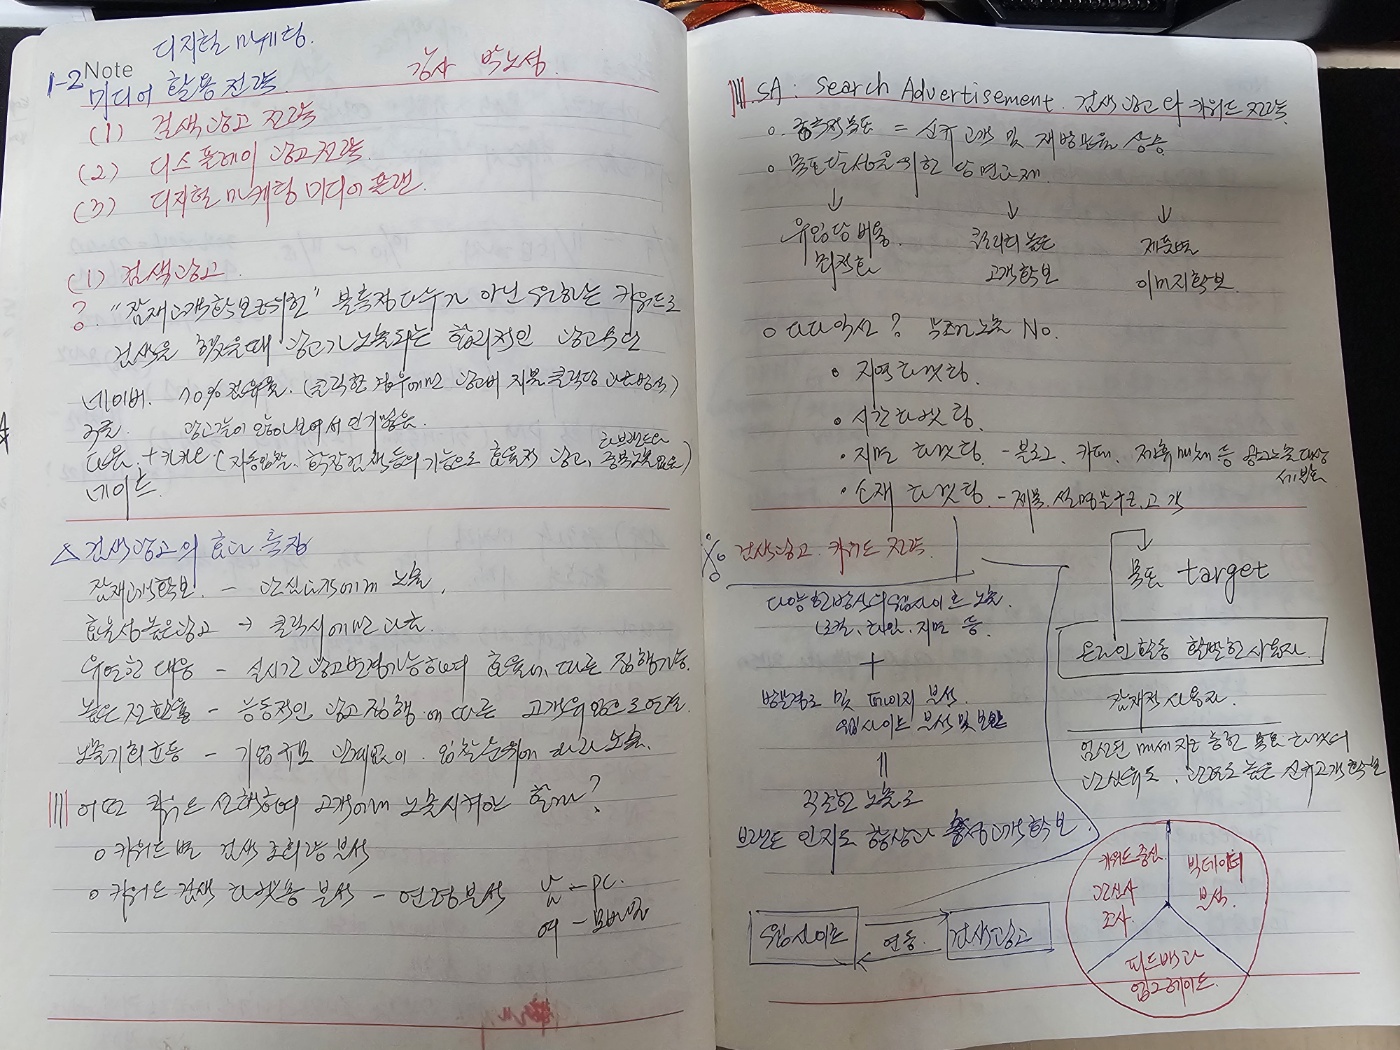 디지털 마케팅.
1-2 Note
미디어 활용전략. 강사 박노성.
(1) 검색광고 전략
(2) 디스플레이 광고전략.
(3) 디지털 마케팅 미디어 플랜.
(1) 검색광고.
? "잠재고객확보를위한" 불특정다수가 아닌 원하는 키워드로
검색을 했을때 광고가 노출되는 합리적인 광고수단
네이버. 70% 점유율. (클릭한 경우에만 광고비 지불 클릭당 과금방식)
구글. 광고같이 안보여서 인기많음.
다음 + 카카오 (자동입찰, 확장검색등의 기능으로 효율적 광고,
네이트.
△ 검색광고의 효과 특징
잠재고객확보. - 관심대상에게 노출.
효율성높은광고 → 클릭시에만 과금.
유연한 대응 - 실시간 광고변경가능하며 효율에 따른 집행가능.
높은 전환율 - 능동적인 광고집행에 따른 고객유입으로 연결.
노출기회균등 - 기업규모 관계없이. 입찰순위에 따라 노출.
어떤 키워드 선택하여 고객에게 노출시켜야 할까?
o 키워드 별 검색 조회수 분석
o 키워드 검색 타겟층 분석 - 연령분석 남 - pc.
여 - 모바일
SA : Search Advertisement. 검색광고와 키워드 전략.
o 궁극적목표 = 신규고객 및 재방문율 상승.
o 목표달성을 위한 당면과제.
↓ ↓ ↓
유입당 비용. 퀄리티 높은 제품별
최적화 고객확보 이미지확보.
o 다다익선? 무조건노출 No.
• 지역타겟팅.
• 시간타겟팅.
• 지면 타겟팅 - 블로그, 카페, 제휴매체 등 광고노출대상
세분화
• 소재 타겟팅 - 제목, 설명문구로 고객
검색광고 키워드 전략.
다양한방식의웹사이트 노출.
(로컬, 타임, 지면 등.
+
방문경로 및 페이지 분석.
웹사이트 분석 및 보완
=
직조한 노출로
브랜드 인지도 향상과 충성고객확보.
웹사이트 연동. 검색광고
목표 target
온라인활동 활발한 사용자.
잠재적 사용자.
엄선된 메세지를 통한 목표 타겟의
관심유도, 관여도 높은 신규고객확보
키워드중심 빅데이터
관심사 분석.
조사.
피드백과
업그레이드.